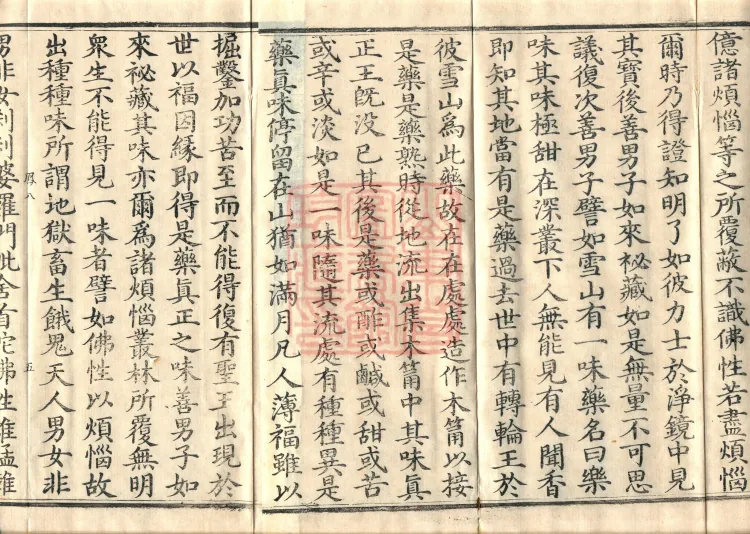 億諸煩惱等之所覆蔽不識佛性若盡煩惱
爾時乃得證知明了如彼力士於淨鏡中見
其寳後善男子如來祕藏如是無量不可思
議復次善男子譬如雪山有一味藥名曰樂
味其味極甜在深叢下人無能見有人聞香
即知其地當有是藥過去世中有轉輪王於
彼雪山爲此藥故在在處處造作木筩以接
是藥是藥熟時從地流出集木筩中其味眞
正王旣没已其後是藥或酢或鹹或甜或苦
或辛或淡如是一味隨其流處有種種異是
藥眞味停留在山猶如滿月凡人薄福雖以
掘鑿加功苦至而不能得復有聖王出現於
世以福因緣即得是藥眞正之味善男子如
來祕藏其味亦爾爲諸煩惱叢林所覆無明
衆生不能得見一味者譬如佛性以煩惱故
出種種味所謂地獄畜生餓鬼天人男女非
八
五
男非女刹利婆羅門毗舍首陀佛性雄猛難